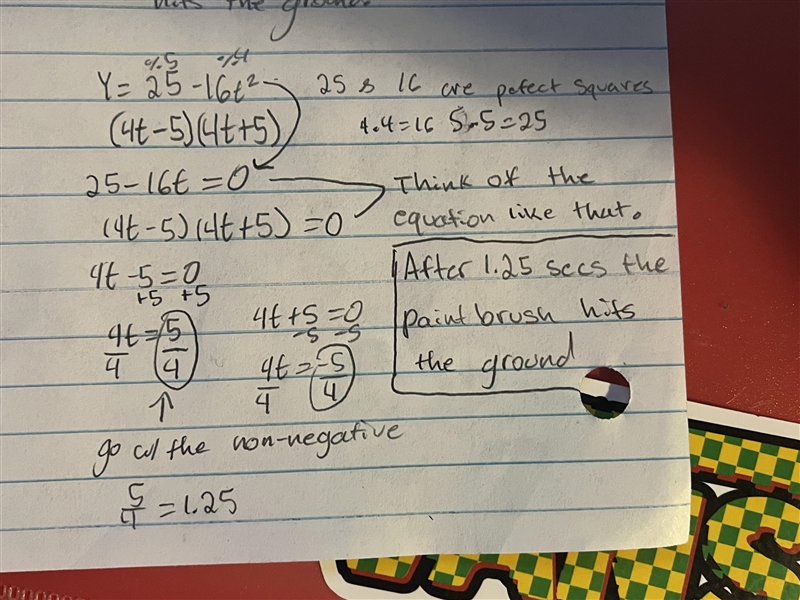 hits the ground.
%5 %4
Y = 25 - 16t² 25 & 16 are pefect squares
(4t-5)(4t+5) 4.4=16 5.5=25
25-16t = 0 Think of the
(4t-5)(4t+5) = 0 equation like that.
4t-5=0 After 1.25 secs the
+5 +5 paint brush hits
4t=5 4t+5=0 the ground
4 4 -5 -5
4t=-5
4 4
go w/ the non-negative
5/4 = 1.25